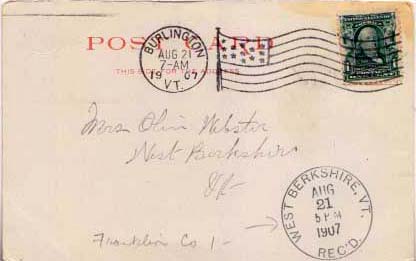 POST CARD
BURLINGTON
AUG 21
7-AM
1907
VT.
THIS SIDE FOR THE ADDRESS
Mrs Olin Webster
West Berkshire
Vt-
Franklin Co
WEST BERKSHIRE, VT.
AUG
21
5 PM
1907
REC'D.